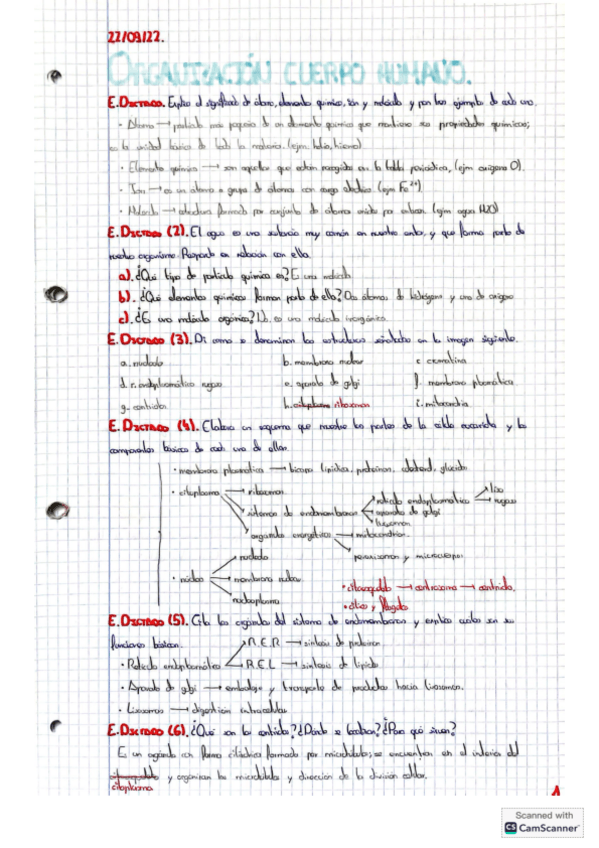 22/09/22.
ORGANIZACIÓN CUERPO HUMANO.
E.DICTADO. Explica el significado de átomo, elemento químico, ión y molécula y pon tres ejemplos de cada uno.
· Átomo → partícula más pequeña de un elemento químico que mantiene sus propiedades químicas;
es la unidad básica de toda la materia. (ejm. helio, hierro)
· Elemento químico → son aquellos que están recogidos en la tabla periódica, (ejm oxígeno O).
· Ion → es un átomo o grupo de átomos con carga eléctrica (ejm Fe²⁺)
· Molécula → estructura formada por conjunto de átomos unidos por enlaces (ejm agua H2O)
E.DICTADO (2). El agua es una sustancia muy común en nuestro entorno, y que forma parte de
nuestro organismo. Responde en relación con ella.
a). ¿Qué tipo de partícula química es? Es una molécula
b). ¿Qué elementos químicos forman parte de ella? Dos átomos de hidrógeno y uno de oxígeno
c). ¿Es una molécula orgánica? No, es una molécula inorgánica.
E.DICTADO (3). Di como se denominan las estructuras señaladas en la imagen siguiente.
a. nucleolo b. membrana nuclear c. cromatina
d. r. endoplasmático rugoso e. aparato de golgi f. membrana plasmática
g. centriolos h. citoplasma ribosomas i. mitocondria
E.DICTADO (4). Elabora un esquema que muestre las partes de la célula eucariota y los
componentes básicos de cada una de ellas.
· membrana plasmática → bicapa lipídica, proteínas, colesterol, glúcidos
· citoplasma → ribosomas
sistema de endomembranas → retículo endoplasmático → liso
rugoso
aparato de golgi
lisosomas
orgánulos energéticos → mitocondrias
peroxisomas y
· núcleo → nucleolo
membrana nuclear
nucleoplasma
· citoesqueleto → centrosoma → centriolo.
· cilios y flagelo
E.DICTADO (5). Cita los orgánulos del sistema de endomembranas y explica cuales son sus
funciones básicas.
· Retículo endoplasmático → R.E.R → síntesis de proteínas
R.E.L → síntesis de lípidos
· Aparato de golgi → embalaje y transporte de productos hacia lisosomas.
· Lisosomas → digestión intracelular
E.DICTADO (6). ¿Qué son los centriolos? ¿Dónde se localizan? ¿Para qué sirven?
Es un orgánulo con forma cilíndrica formada por microtúbulos; se encuentran en el interior del
citoplasma y organizan los microtúbulos y dirección de la división celular.
A
Scanned with
CS CamScanner